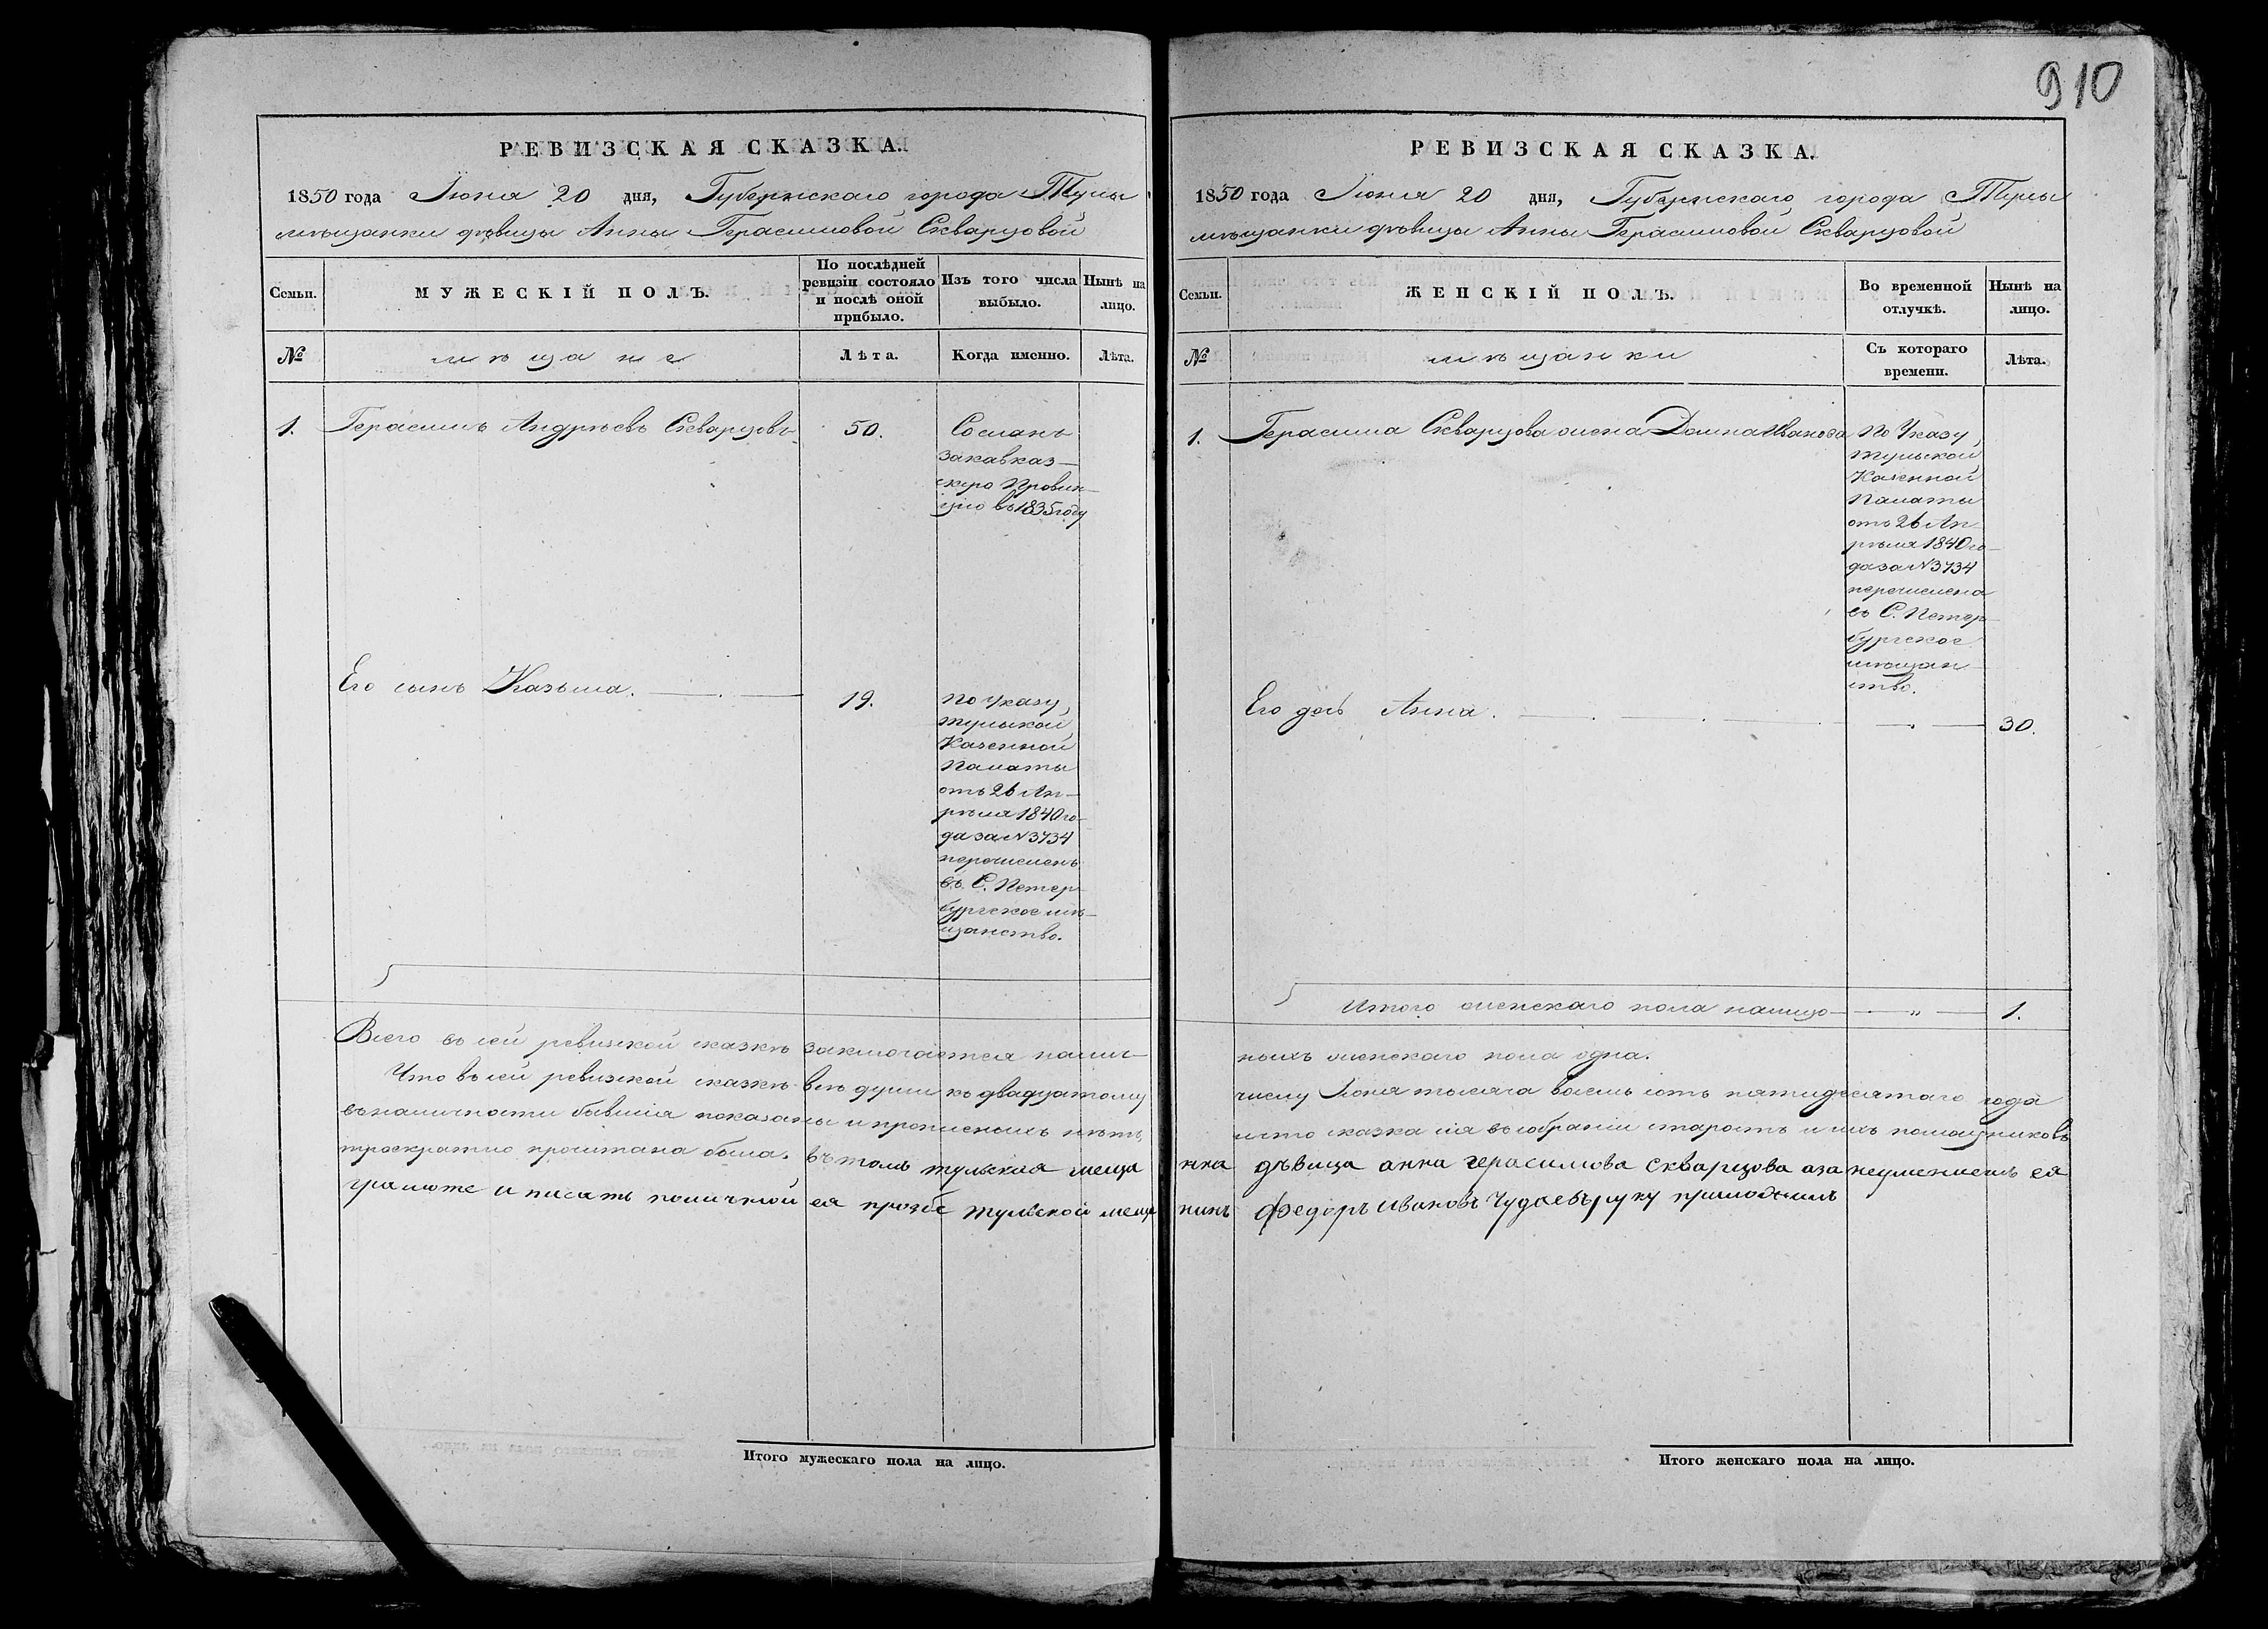 910
РЕВИЗСКАЯ СКАЗКА.
1850 года Іюня 20 дня, Губернскаго города Тулы
мѣщанки дѣвицы Анны Герасимовой Скварцовой
Семьи.
МУЖЕСКІЙ ПОЛЪ.
По послѣдней
ревизіи состояло
и послѣ оной
прибыло.
Изъ того числа
выбыло.
Нынѣ на
лицо.
№
мѣщане
Лѣта.
Когда именно.
Лѣта.
1. Герасимъ Андрѣевъ Скварцовъ 50.
Сосланъ
закавказ-
скую Провин-
цію въ 1835 году
Его сынъ Казьма. 19.
По Указу
тульской
Казенной
Палаты
отъ 26 Ап-
рѣля 1840 го-
да за №3734
перечисленъ
въ С. Петер-
бургское мѣ-
щанство.
Всего въ сей ревизской сказкѣ заключается налич-
Что въ сей ревизской сказкѣ всѣ души къ двадцатому
въ наличности бывшія показаны и прописныхъ нѣтъ,
троекратно прочитана была. въ томъ тульская меща
грамоте и писать поличной ея прозбе тульской меща
Итого мужескаго пола на лицо.
РЕВИЗСКАЯ СКАЗКА.
1850 года Іюня 20 дня, Губернскаго города Тулы
мѣщанки дѣвицы Анны Герасимовой Скварцовой
Семьи.
ЖЕНСКІЙ ПОЛЪ.
Во временной
отлучкѣ.
Нынѣ на
лицо.
№
мѣщанки
Съ котораго
времени.
Лѣта.
1. Герасима Скварцова жена Домна Иванова
По Указу
тульской
Казенной
Палаты
отъ 26 Ап
рѣля 1840 го-
да за №3734
перечислена
въ С. Петер-
бургское
мѣщан-
ство.
Его дочь Анна. 30.
Итого женскаго пола налицо 1.
ныхъ женскаго пола одна.
числу Іюня тысяча восемь сотъ пятидесятаго года
и что сказка сія въ собраніи старостъ и ихъ помощниковъ
нка дѣвица анна герасимова скварцова аза неумениемъ ея
нинъ Федоръ Ивановъ Чудаевъ руку приложилъ
Итого женскаго пола на лицо.